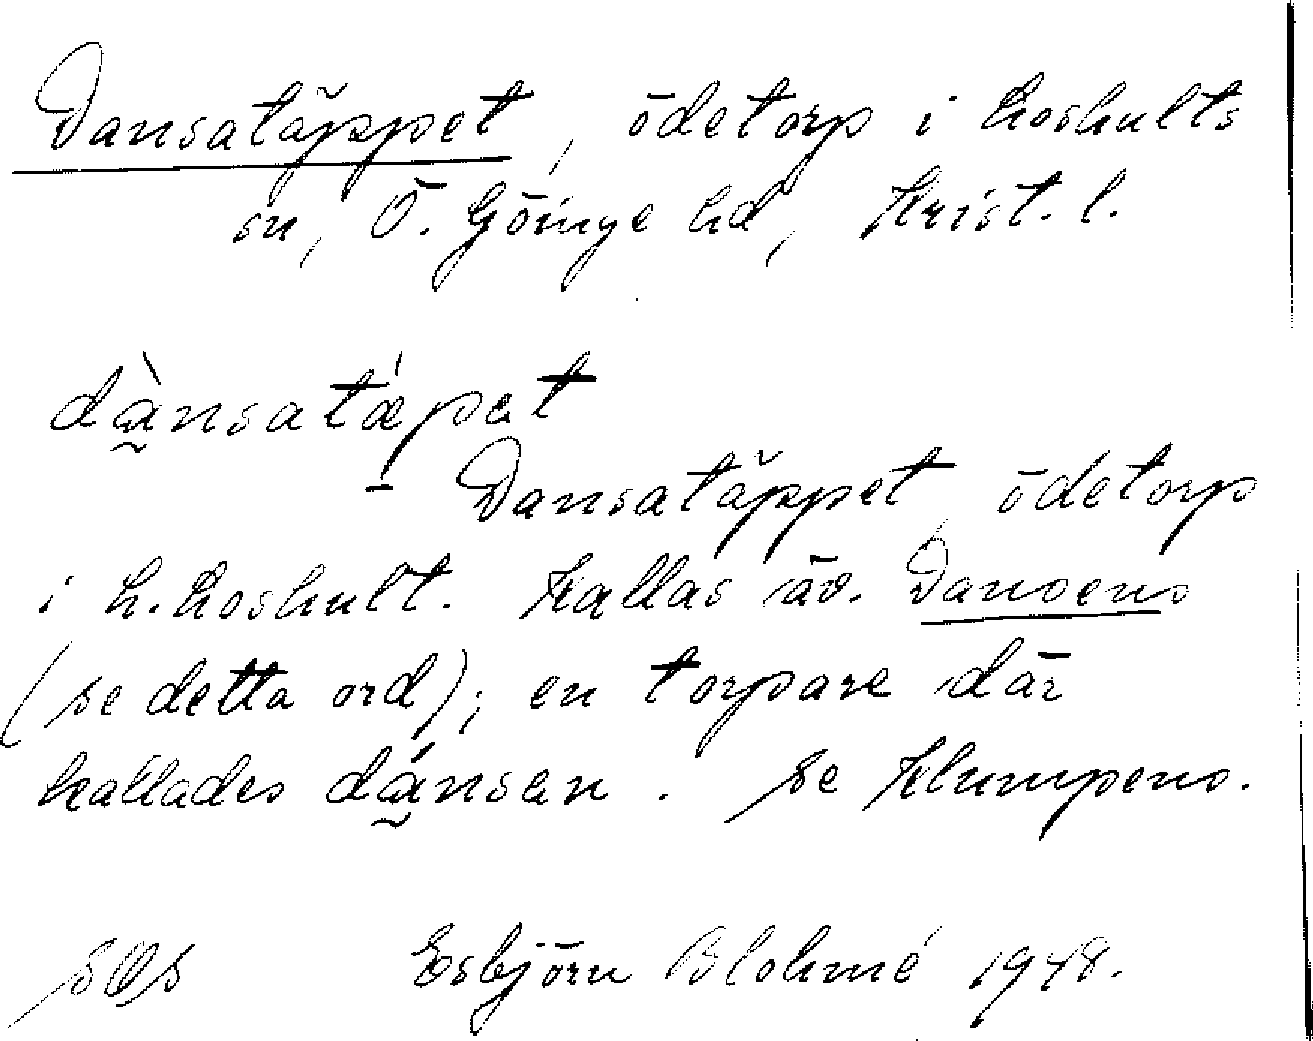 Dansatäppet, ödetorp i Loshults
sn, Ö. Göinge hd, Krist. l.
dànsatǽpət
Dansatäppet, ödetorp
i L. Loshult. Kallas äv. Dansens
(se detta ord); en torpare där
kallades dánsən. Se Klumpens.
SOS Esbjörn Blohmé 1948.